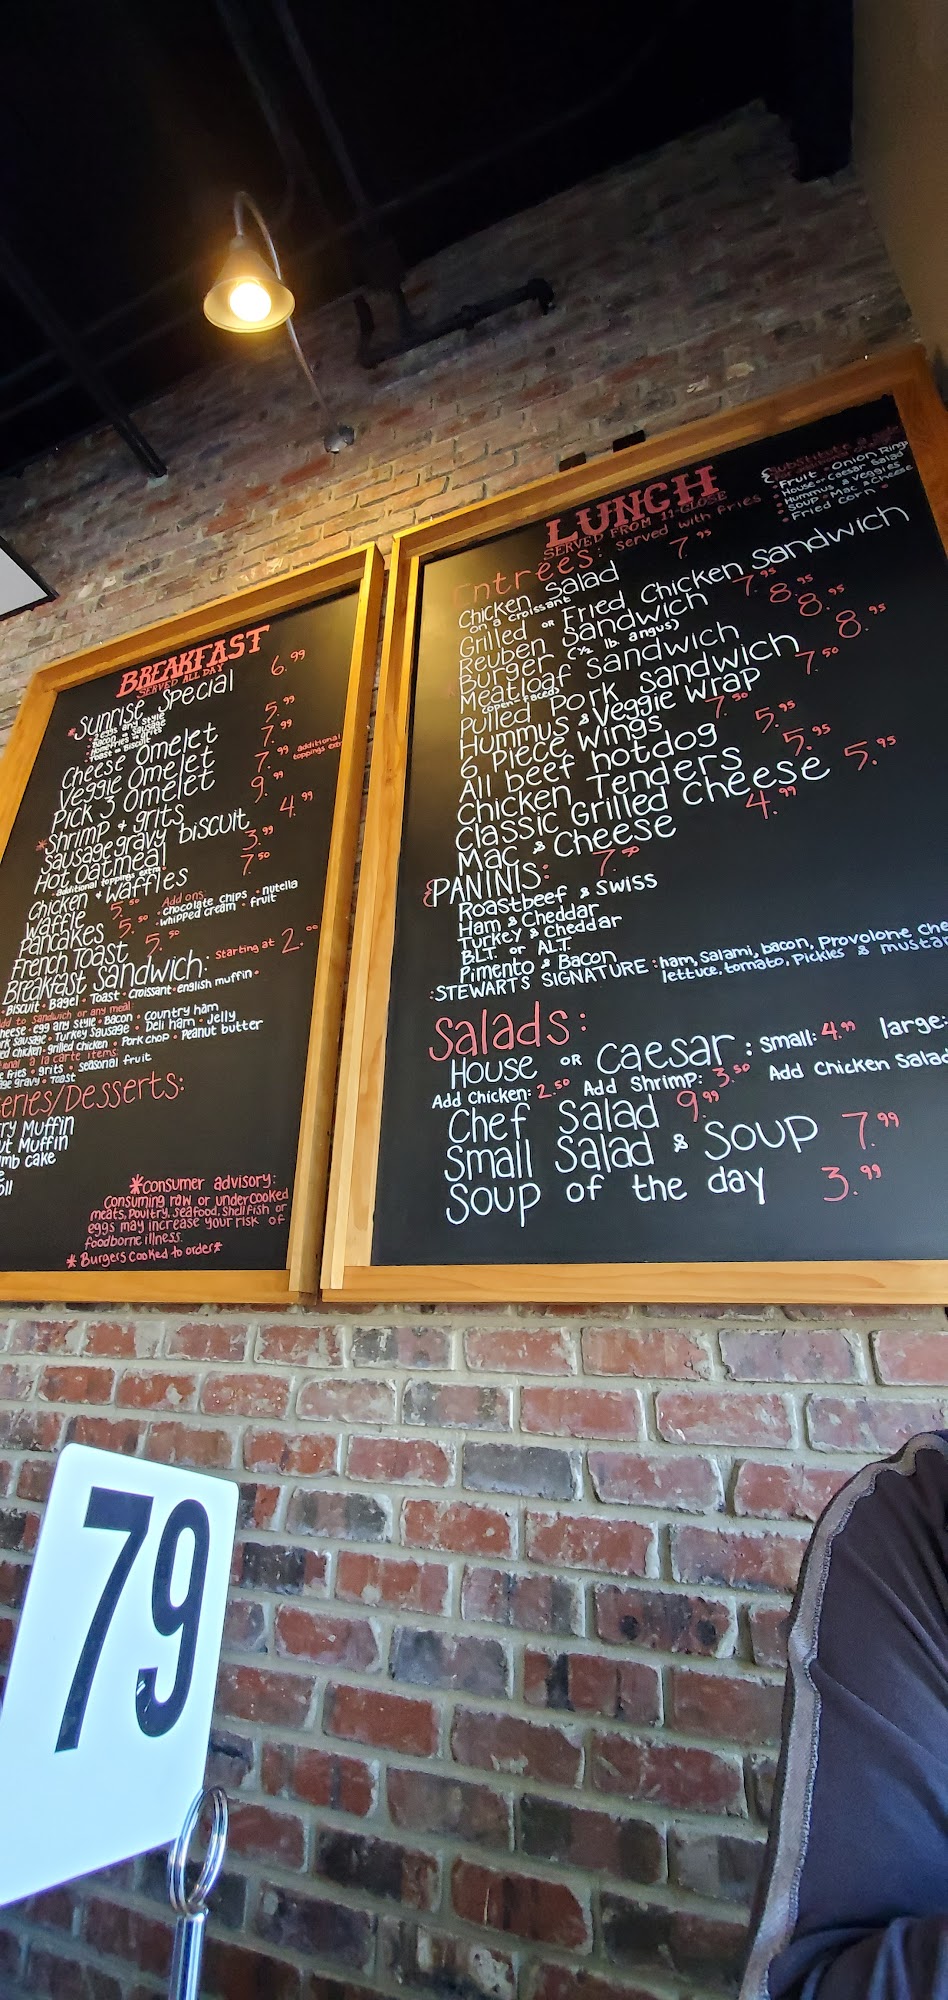 BREAKFAST
SERVED ALL DAY
*Sunrise Special 6.99
• eggs any style
• Bacon or Sausage
Cheese Omelet 5.99
Veggie Omelet 7.99
Pick 3 Omelet 7.99 additional toppings extra
*Shrimp & grits 9.99
Sausage gravy biscuit 4.99
Hot Oatmeal 3.99
• additional toppings extra •
Chicken & Waffles 7.50
Waffle 5.50
Add ons:
• chocolate chips • nutella
• whipped cream • fruit
Pancakes 5.50
French Toast 5.50
Breakfast Sandwich: Starting at 2.00
• Biscuit • Bagel • Toast • Croissant • english muffin •
Add to Sandwich or any meal:
cheese • egg any style • Bacon • country ham
Sausage • Turkey Sausage • Deli ham • Jelly
chicken • grilled chicken • Pork chop • Peanut butter
a la carte items:
fries • grits • seasonal fruit
gravy • Toast
eries/Desserts:
ry Muffin
ut Muffin
mb cake
oll
*Consumer advisory:
Consuming raw or undercooked
meats, poultry, seafood, shellfish or
eggs may increase your risk of
foodborne illness.
* Burgers cooked to order*
LUNCH
SERVED FROM 11-CLOSE
Entrees: Served with fries
Substitute a
• Fruit • Onion Rings
• House or Caesar Salad
• Hummus & Veggies
• Soup • Mac & Cheese
• Fried Corn •
Chicken Salad 7.95
on a croissant
Grilled or Fried Chicken Sandwich
Reuben Sandwich 7.95
Burger (1/2 lb. angus) 8.95
Meatloaf Sandwich 8.95
(open-faced)
Pulled Pork Sandwich 8.95
Hummus & Veggie Wrap 7.50
6 Piece Wings 7.50
All beef hotdog 5.95
Chicken Tenders 5.95
Classic Grilled Cheese 5.95
Mac & Cheese 4.99
PANINIS:
Roastbeef & Swiss
Ham & Cheddar
Turkey & Cheddar
B.L.T. or A.L.T.
Pimento & Bacon
:STEWART'S SIGNATURE: ham, Salami, bacon, Provolone Che
lettuce, tomato, Pickles & musta
Salads:
House OR Caesar: small: 4.99 large:
Add Chicken: 2.50 Add Shrimp: 3.50 Add Chicken Salad
Chef Salad 9.99
Small Salad & Soup 7.99
Soup of the day 3.99
79